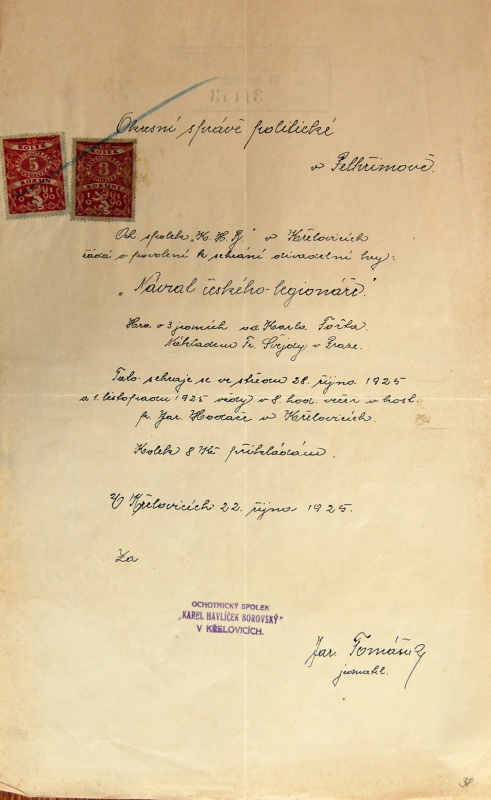 Okresní správě politické
v Pelhřimově.
KOLEK
5
KORUN
KOLEK
3
KORUNY
Och. spolek "K. H. B." v Křelovicích
žádá o povolení k sehrání divadelní hry:
"Návrat českého legionáře."
Hra o 3 jedních od Karla Fořta.
Nákladem Fr. Švejdy v Praze.
Tato sehraje se ve středu 28. října 1925
a 1. listopadu 1925 vždy v 8 hod. večer v host.
p. Jar. Hodače v Křelovicích.
Kolek 8 Kč přikládám.
V Křelovicích 22. října 1925.
Za
OCHOTNICKÝ SPOLEK
„KAREL HAVLÍČEK BOROVSKÝ"
V KŘELOVICÍCH.
Jar. Tomášek
jednatel.